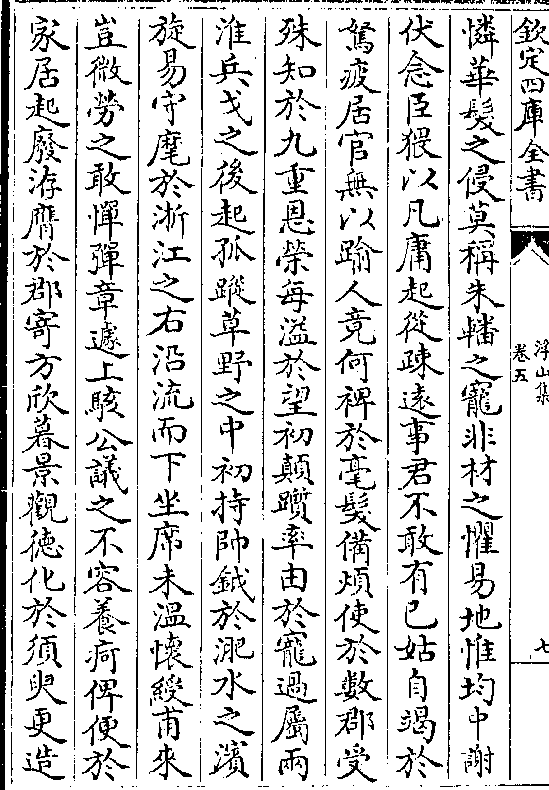 欽定四庫全書
浮山集
卷五
七
憐華髮之侵莫稱朱轓之寵非材之懼易地惟均中謝
伏念臣猥以凡庸起從疎遠事君不敢有已姑自竭於
駑疲居官無以踰人竟何裨於毫髮備煩使於數郡受
殊知於九重恩榮每溢於望初顛躓率由於寵過屬兩
淮兵戈之後起孤蹤草野之中初持帥鉞於淝水之濱
旋易守麾於浙江之右沿流而下坐席未溫懷綬甫來
豈微勞之敢憚彈章遽上駭公議之不容養痾俾便於
家居起廢洊膺於郡寄方欣暮景觀徳化於須臾更造